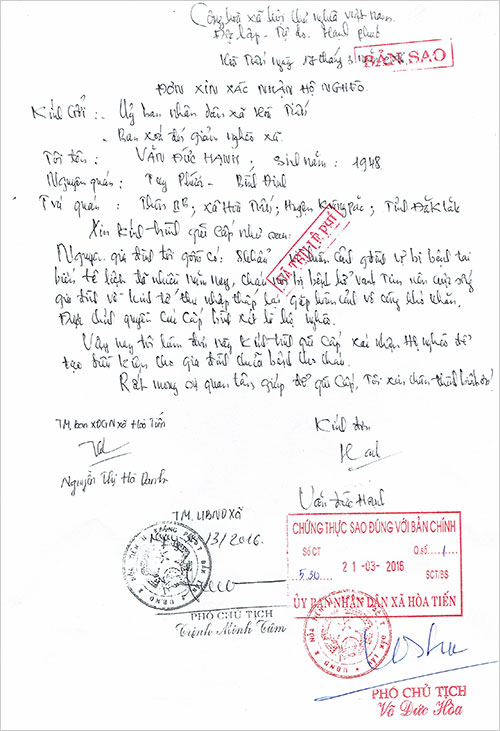 Cộng hoà xã hội chủ nghĩa việt nam.
Độc lập - Tự do. Hạnh phúc
Hoà Tiến ngày 17 tháng 3
BẢN SAO
ĐƠN XIN XÁC NHẬN HỘ NGHÈO.
Kính Gửi: Uỷ ban nhân dân xã Hoà Tiến
- Ban xoá đói giảm nghèo xã.
Tôi tên: VĂN ĐỨC HẠNH, Sinh năm: 1948.
Nguyên quán: Tuy Phước - Bình Định
Trú quán: Thôn xã Hoà Tiến, Huyện Krông pắc; Tỉnh Đắk lắk
Xin Kính trình quí Cấp như sau:
ĐÃ THU LỆ PHÍ
Nguyên gia đình tôi gồm có: khẩu bị bệnh tai
biến tê liệt đã nhiều năm nay, cháu bị bệnh hở van Tim nên cuộc sống
gia đình về kinh tế thu nhập thấp lại gặp hoàn cảnh vô cùng khó khăn.
Được chính quyền các Cấp bình xét là hộ nghèo.
Vậy nay tôi làm đơn này Kính trình quí Cấp xác nhận Hộ nghèo để
tạo điều kiện cho gia đình chữa bệnh cho cháu.
Rất mong cơ quan tâm, giúp đỡ quí Cấp, Tôi xin chân thành
TM, ban XĐGN xã Hoà Tiến
Kính đơn
Nguyễn Thị Hà Danh
Văn Đức Hạnh
TM. UBND Xã
Ngày /3/2016.
CHỨNG THỰC SAO ĐÚNG VỚI BẢN CHÍNH
Số CT Q.số: 1
21-03-2016
530 SCT/BS
ỦY BAN NHÂN DÂN XÃ HÒA TIẾN
PHÓ CHỦ TỊCH
Trịnh Minh Tâm
PHÓ CHỦ TỊCH
Võ Đức Hòa